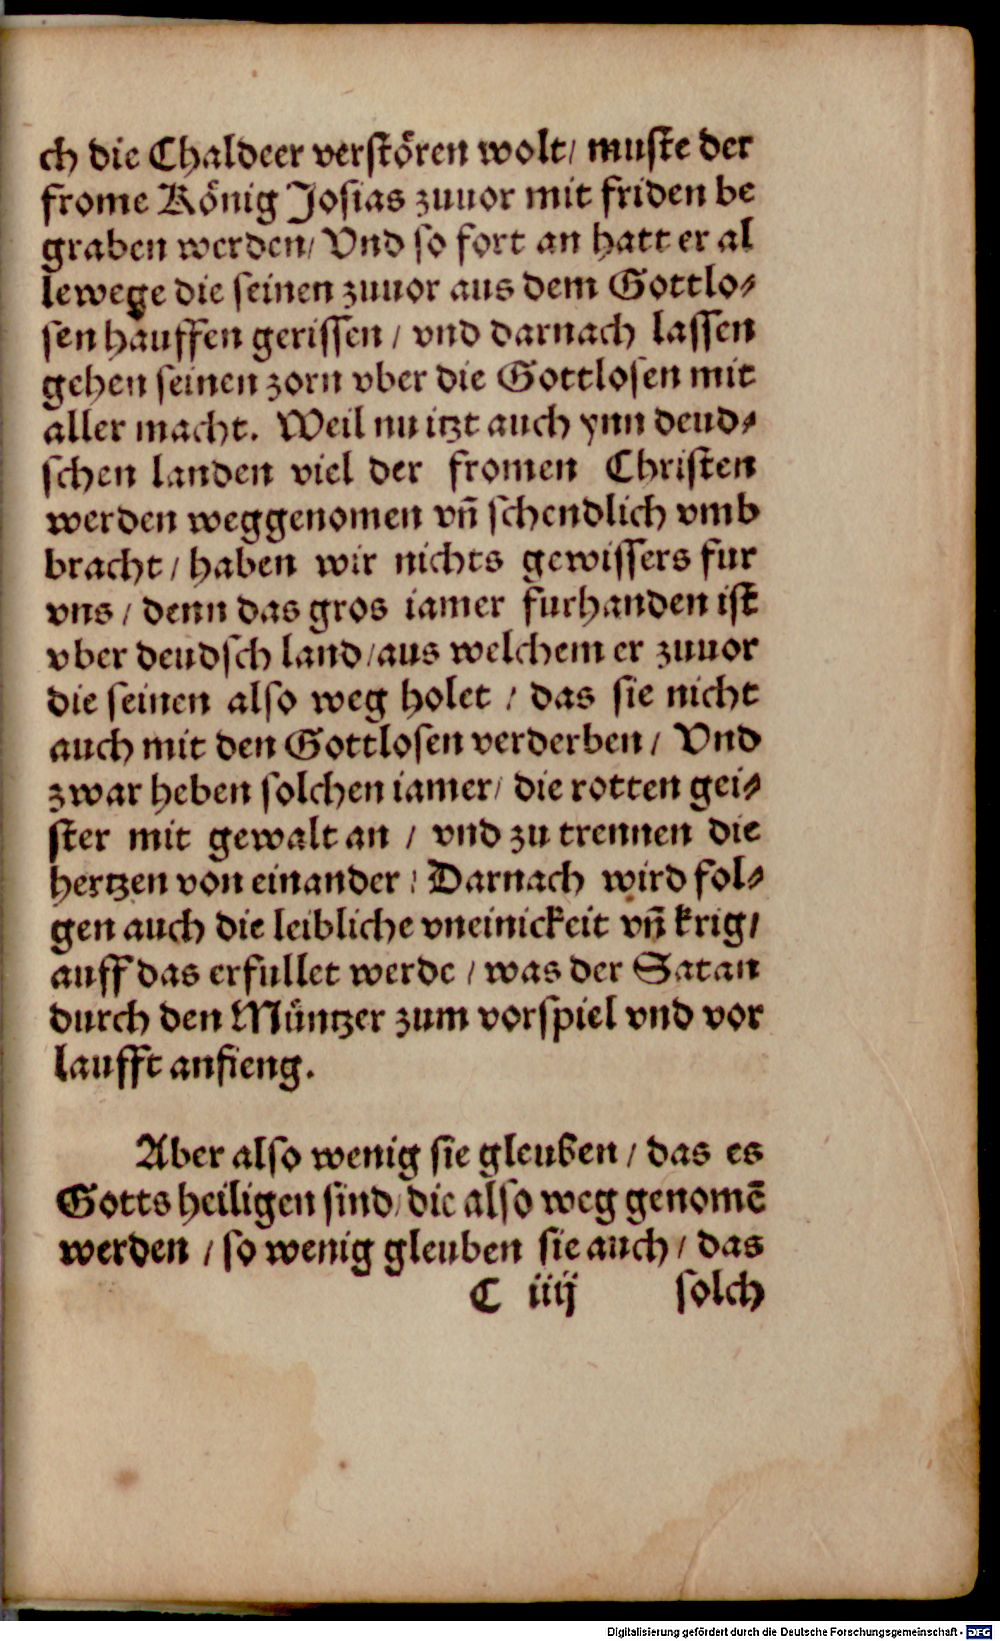 ch die Chaldeer verstören wolt/ muste der
frome König Josias zuuor mit friden be
graben werden/ Vnd so fort an hatt er al
lewege die seinen zuuor aus dem Gottlo⸗
sen hauffen gerissen / vnd darnach lassen
gehen seinen zorn vber die Gottlosen mit
aller macht. Weil nu itzt auch ynn deud⸗
schen landen viel der fromen Christen
werden weggenomen vñ schendlich vmb
bracht / haben wir nichts gewissers fur
vns / denn das gros iamer furhanden ist
vber deudsch land/aus welchem er zuuor
die seinen also weg holet / das sie nicht
auch mit den Gottlosen verderben / Vnd
zwar heben solchen iamer/ die rotten gei⸗
ster mit gewalt an / vnd zu trennen die
hertzen von einander: Darnach wird fol⸗
gen auch die leibliche vneinickeit vñ krig/
auff das erfullet werde / was der Satan
durch den Müntzer zum vorspiel vnd vor
laufft anfieng.
Aber also wenig sie gleuben / das es
Gotts heiligen sind/ die also weg genomē
werden / so wenig gleuben sie auch / das
C iiij solch
Digitalisierung gefördert durch die Deutsche Forschungsgemeinschaft - DFG